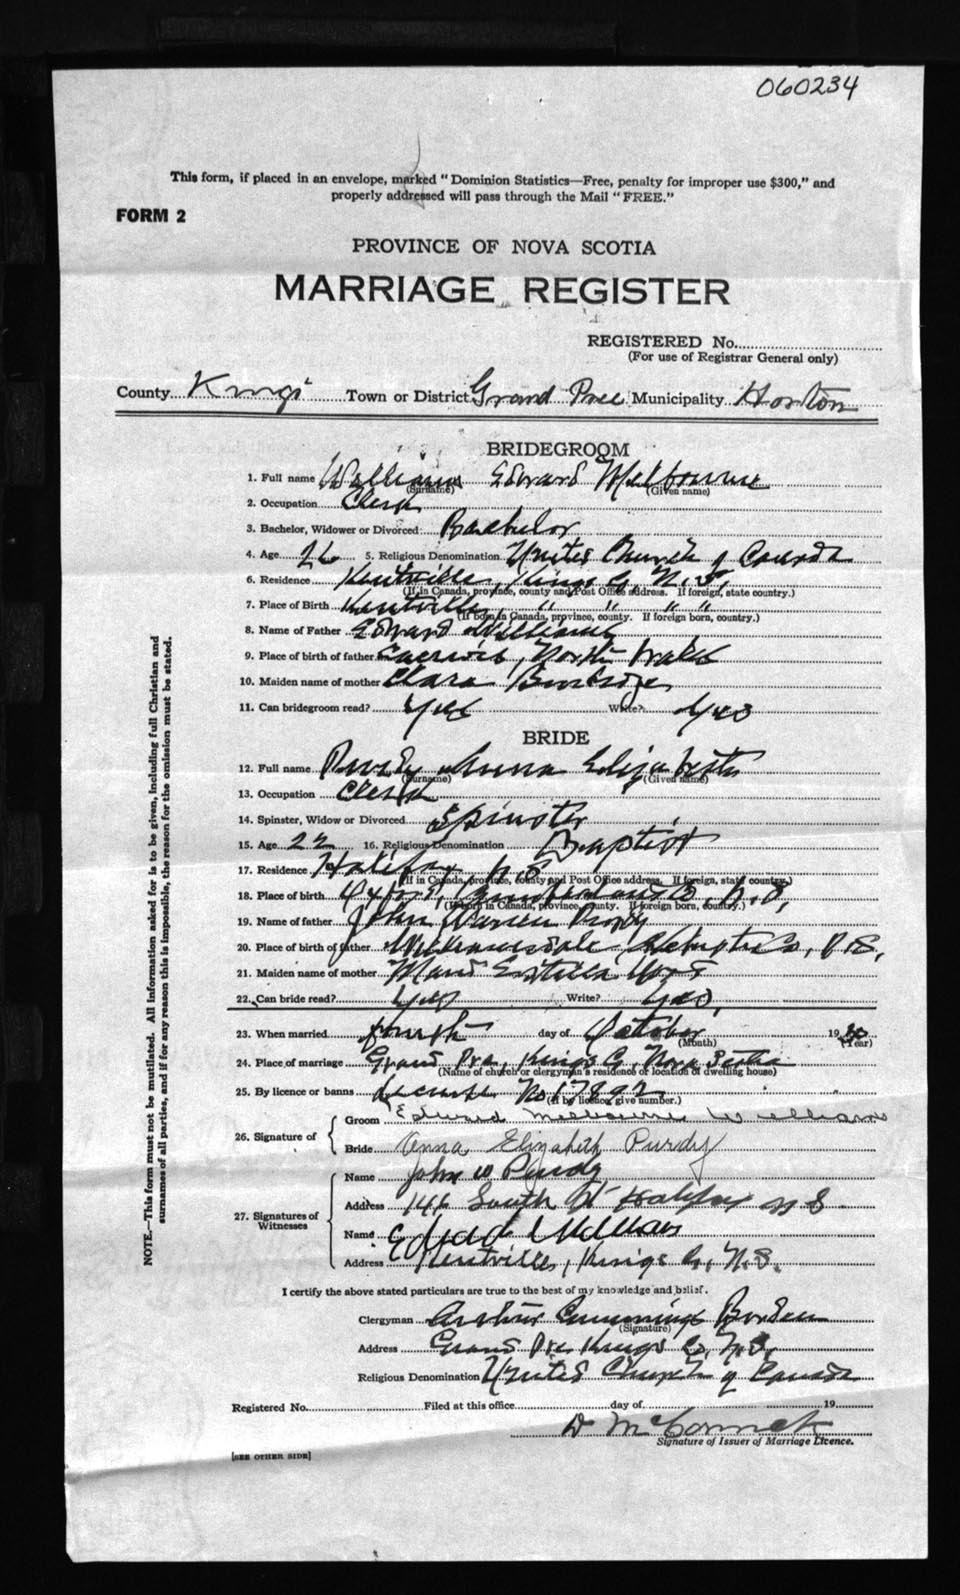 060234
This form, if placed in an envelope, marked "Dominion Statistics—Free, penalty for improper use $300," and
properly addressed will pass through the Mail "FREE."
FORM 2
PROVINCE OF NOVA SCOTIA
MARRIAGE REGISTER
REGISTERED No.
(For use of Registrar General only)
County Kings Town or District Grand Pre Municipality Horton
BRIDEGROOM
1. Full name Williams Edward Melbourne
(Surname) (Given name)
2. Occupation Clerk
3. Bachelor, Widower or Divorced Bachelor
4. Age 26 5. Religious Denomination United Church of Canada
6. Residence Kentville, Kings Co. N.S.
(If in Canada, province, county and Post Office address. If foreign, state country.)
7. Place of Birth Kentville, " " " "
(If born in Canada, province, county. If foreign born, country.)
8. Name of Father Edward Williams
9. Place of birth of father North Wales
10. Maiden name of mother Clara
11. Can bridegroom read? Yes Write? Yes
BRIDE
12. Full name Purdy Anna Elizabeth
(Surname) (Given name)
13. Occupation Clerk
14. Spinster, Widow or Divorced Spinster
15. Age 22 16. Religious Denomination Baptist
17. Residence Halifax, N.S
(If in Canada, province, county and Post Office address. If foreign, state country.)
18. Place of birth Oxford, Cumberland Co, N.S,
(If born in Canada, province, county. If foreign born, country.)
19. Name of father John Warren Purdy
20. Place of birth of father
21. Maiden name of mother Maud Estella
22. Can bride read? Yes Write? Yes,
23. When married fourth day of October 19
(Month) (Year)
24. Place of marriage Grand Pre, Kings Co, Nova Scotia
(Name of church or clergyman's residence or location of dwelling house)
25. By licence or banns License No 17892
(If by licence, give number.)
26. Signature of
Groom Edward Melbourne Williams
Bride Anna Elizabeth Purdy
27. Signatures of Witnesses
Name John W Purdy
Address 146 South St Halifax N S
Name Edward Williams
Address Kentville, Kings Co, N.S.
I certify the above stated particulars are true to the best of my knowledge and belief.
Clergyman Arthur Cummings Borden
(Signature)
Address Grand Pre Kings Co, N.S.
Religious Denomination United Church of Canada
Registered No. Filed at this office day of 19
D McCormick
Signature of Issuer of Marriage Licence.
[SEE OTHER SIDE]
NOTE.—This form must not be mutilated. All information asked for is to be given, including full Christian and
surnames of all parties, and if for any reason this is impossible, the reason for the omission must be stated.